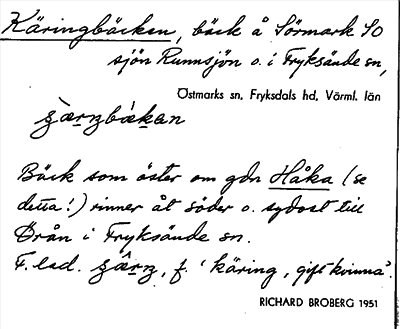 Käringbäcken, bäck å Sörmark SO
sjön Runnsjön o. i Fryksände sn,
Östmarks sn. Fryksdals hd. Värml. län
Bäck som öster om gdn Håka (se
detta!) rinner åt söder o. sydost till
Örån i Fryksände sn.
F. led. f. 'käring, gift kvinna'.
RICHARD BROBERG 1951